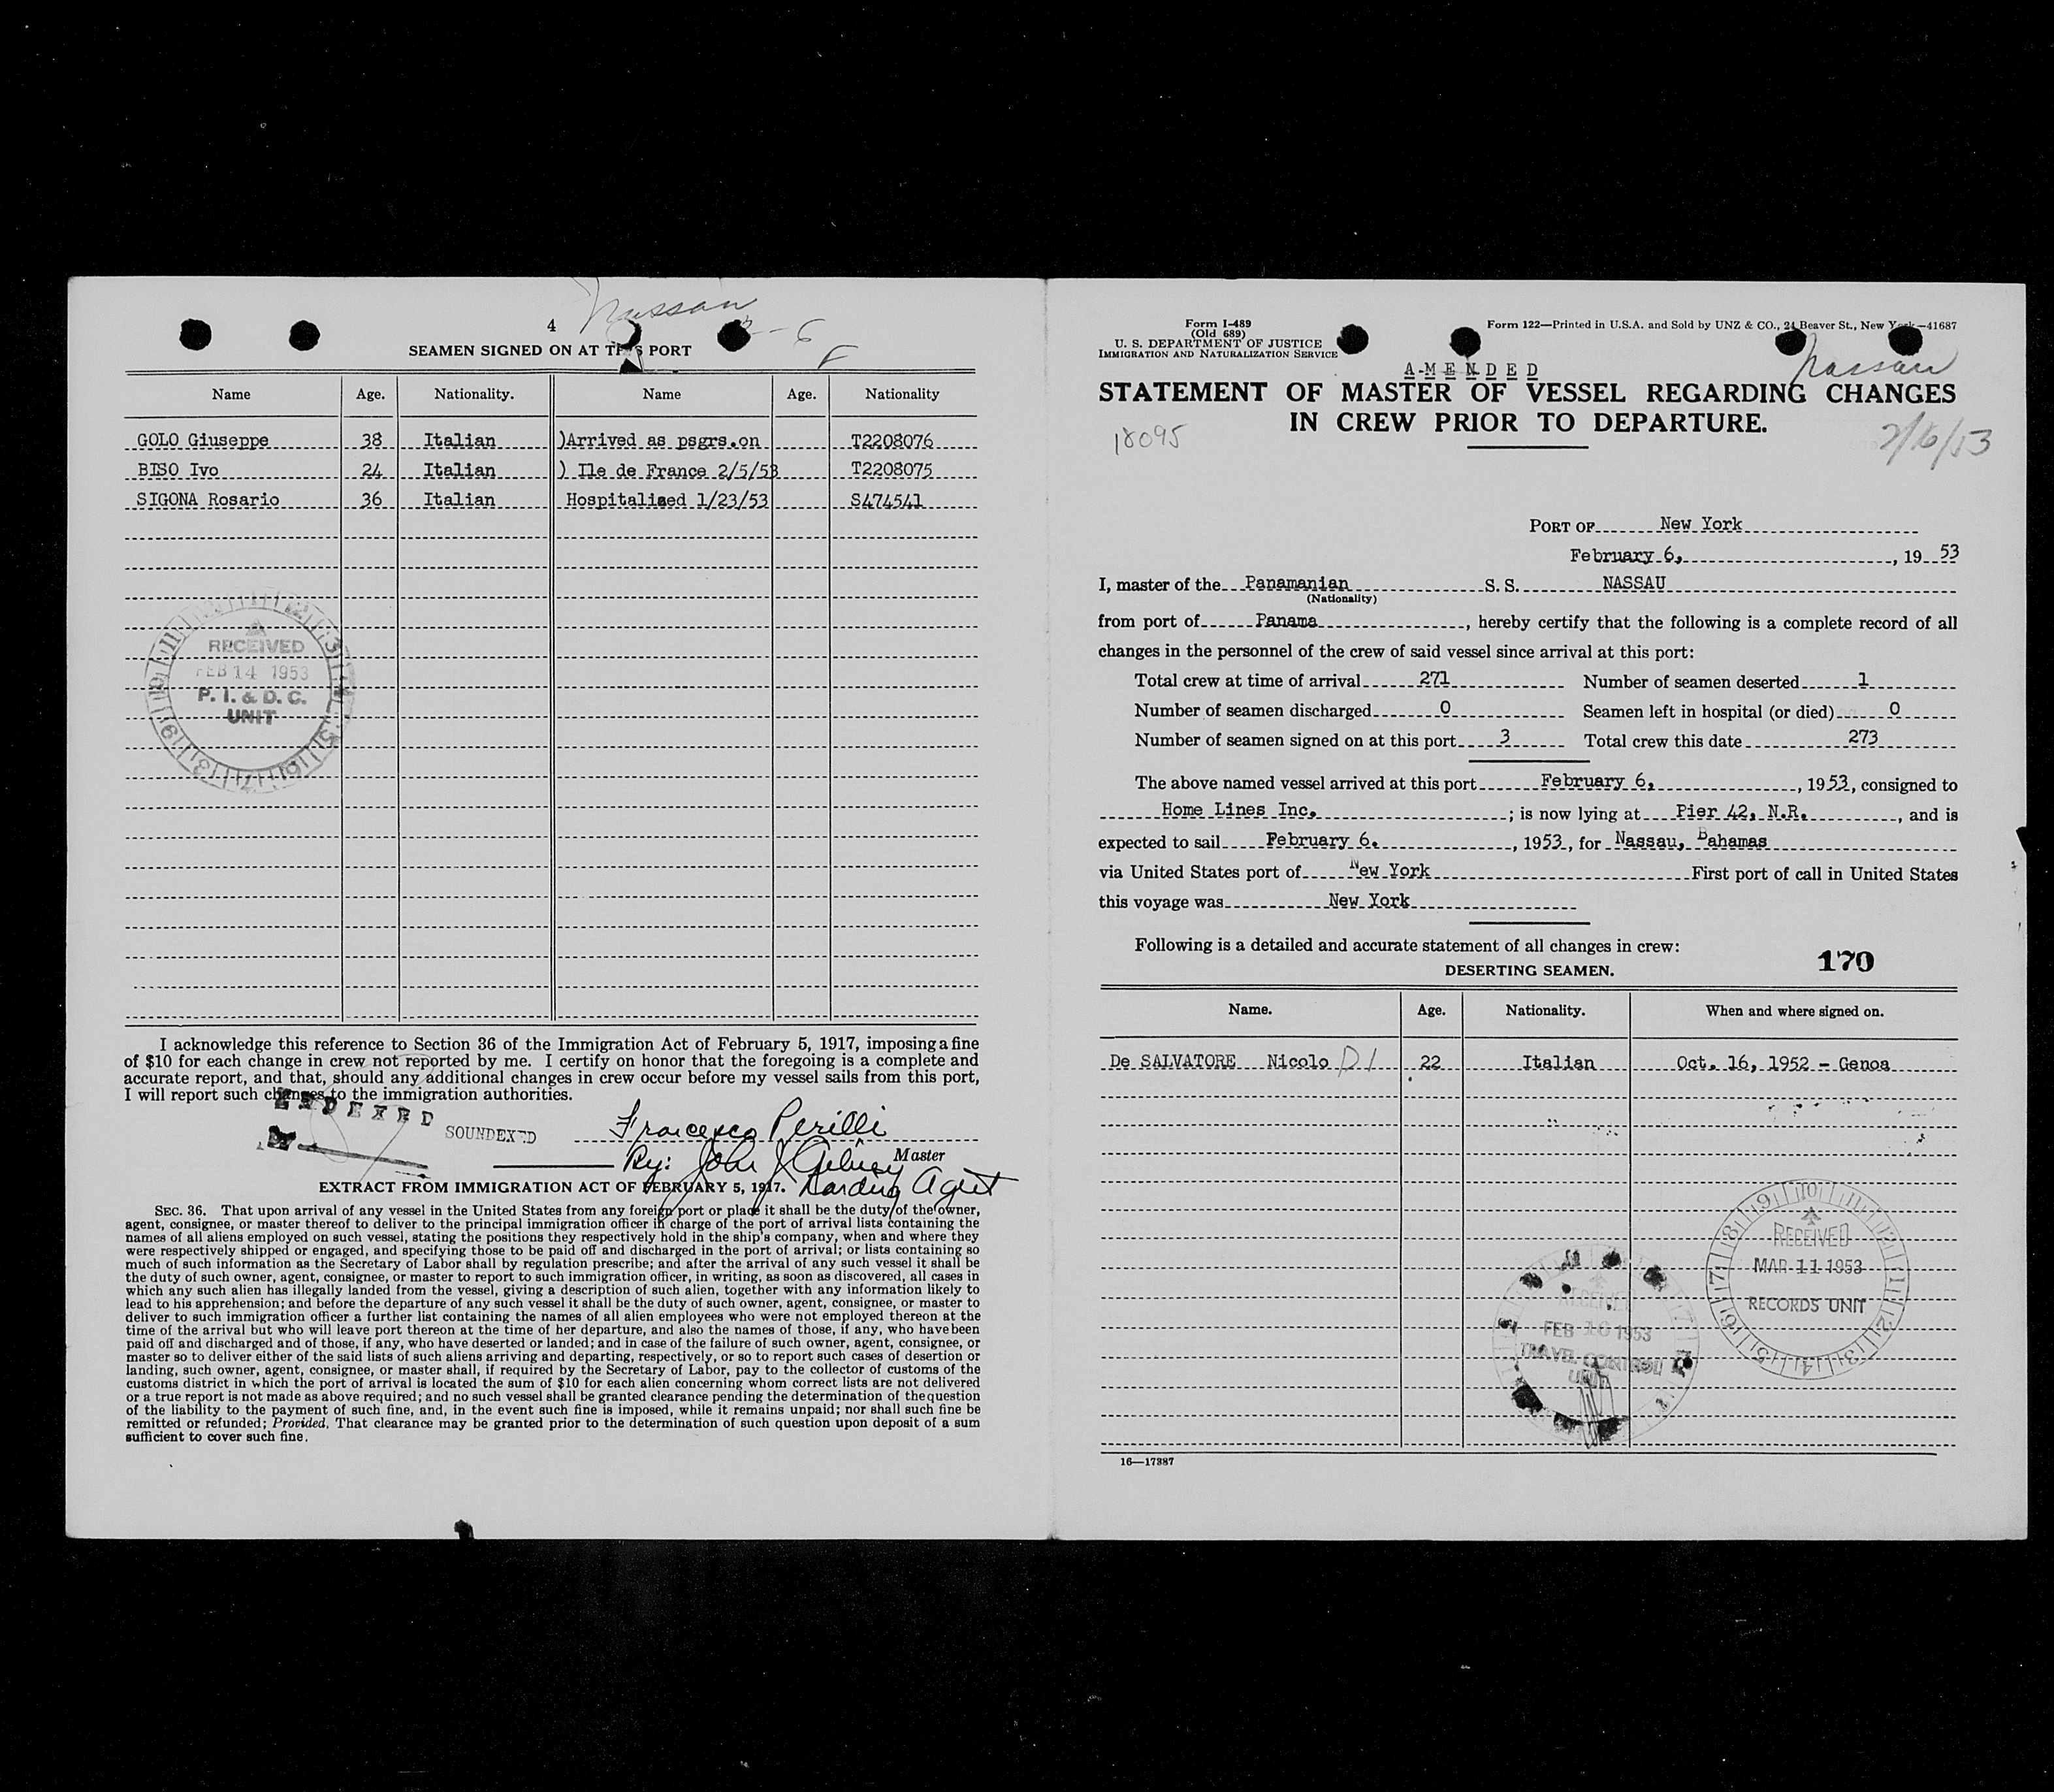 4
Nassau
2-6
SEAMEN SIGNED ON AT THIS PORT
Name Age. Nationality. Name Age. Nationality
GOLO Giuseppe 38 Italian )Arrived as psgrs.on T2208076
BISO Ivo 24 Italian ) Ile de France 2/5/53 T2208075
SIGONA Rosario 36 Italian Hospitalised 1/23/53 S474541
RECEIVED
FEB 14 1953
P. I. & D. C.
UNIT
I acknowledge this reference to Section 36 of the Immigration Act of February 5, 1917, imposing a fine
of $10 for each change in crew not reported by me. I certify on honor that the foregoing is a complete and
accurate report, and that, should any additional changes in crew occur before my vessel sails from this port,
I will report such changes to the immigration authorities.
INDEXED
SOUNDEXED
Francesco Perilli
Master
By: John J
Agent
EXTRACT FROM IMMIGRATION ACT OF FEBRUARY 5, 1917.
SEC. 36. That upon arrival of any vessel in the United States from any foreign port or place it shall be the duty of the owner,
agent, consignee, or master thereof to deliver to the principal immigration officer in charge of the port of arrival lists containing the
names of all aliens employed on such vessel, stating the positions they respectively hold in the ship's company, when and where they
were respectively shipped or engaged, and specifying those to be paid off and discharged in the port of arrival; or lists containing so
much of such information as the Secretary of Labor shall by regulation prescribe; and after the arrival of any such vessel it shall be
the duty of such owner, agent, consignee, or master to report to such immigration officer, in writing, as soon as discovered, all cases in
which any such alien has illegally landed from the vessel, giving a description of such alien, together with any information likely to
lead to his apprehension; and before the departure of any such vessel it shall be the duty of such owner, agent, consignee, or master to
deliver to such immigration officer a further list containing the names of all alien employees who were not employed thereon at the
time of the arrival but who will leave port thereon at the time of her departure, and also the names of those, if any, who have been
paid off and discharged and of those, if any, who have deserted or landed; and in case of the failure of such owner, agent, consignee, or
master so to deliver either of the said lists of such aliens arriving and departing, respectively, or so to report such cases of desertion or
landing, such owner, agent, consignee, or master shall, if required by the Secretary of Labor, pay to the collector of customs of the
customs district in which the port of arrival is located the sum of $10 for each alien concerning whom correct lists are not delivered
or a true report is not made as above required; and no such vessel shall be granted clearance pending the determination of the question
of the liability to the payment of such fine, and, in the event such fine is imposed, while it remains unpaid; nor shall such fine be
remitted or refunded; Provided, That clearance may be granted prior to the determination of such question upon deposit of a sum
sufficient to cover such fine.
Form I-489
(Old 689)
U. S. DEPARTMENT OF JUSTICE
IMMIGRATION AND NATURALIZATION SERVICE
Form 122—Printed in U.S.A. and Sold by UNZ & CO., 24 Beaver St., New York—41687
Nassau
A-M-E-N-D-E-D
STATEMENT OF MASTER OF VESSEL REGARDING CHANGES
IN CREW PRIOR TO DEPARTURE.
18095
2/16/53
PORT OF New York
February 6, , 19 53
I, master of the Panamanian S. S. NASSAU
(Nationality)
from port of Panama , hereby certify that the following is a complete record of all
changes in the personnel of the crew of said vessel since arrival at this port:
Total crew at time of arrival 271 Number of seamen deserted 1
Number of seamen discharged 0 Seamen left in hospital (or died) 0
Number of seamen signed on at this port 3 Total crew this date 273
The above named vessel arrived at this port February 6, , 1953, consigned to
Home Lines Inc. ; is now lying at Pier 42, N.R. , and is
expected to sail February 6. , 1953, for Nassau, Bahamas
via United States port of New York First port of call in United States
this voyage was New York
Following is a detailed and accurate statement of all changes in crew:
170
DESERTING SEAMEN.
Name. Age. Nationality. When and where signed on.
De SALVATORE Nicolo D/ 22 Italian Oct. 16, 1952 - Genoa
RECEIVED
MAR 11 1953
RECORDS UNIT
RECEIVED
FEB 10 1953
TRAVEL CONTROL
UNIT
16—17387